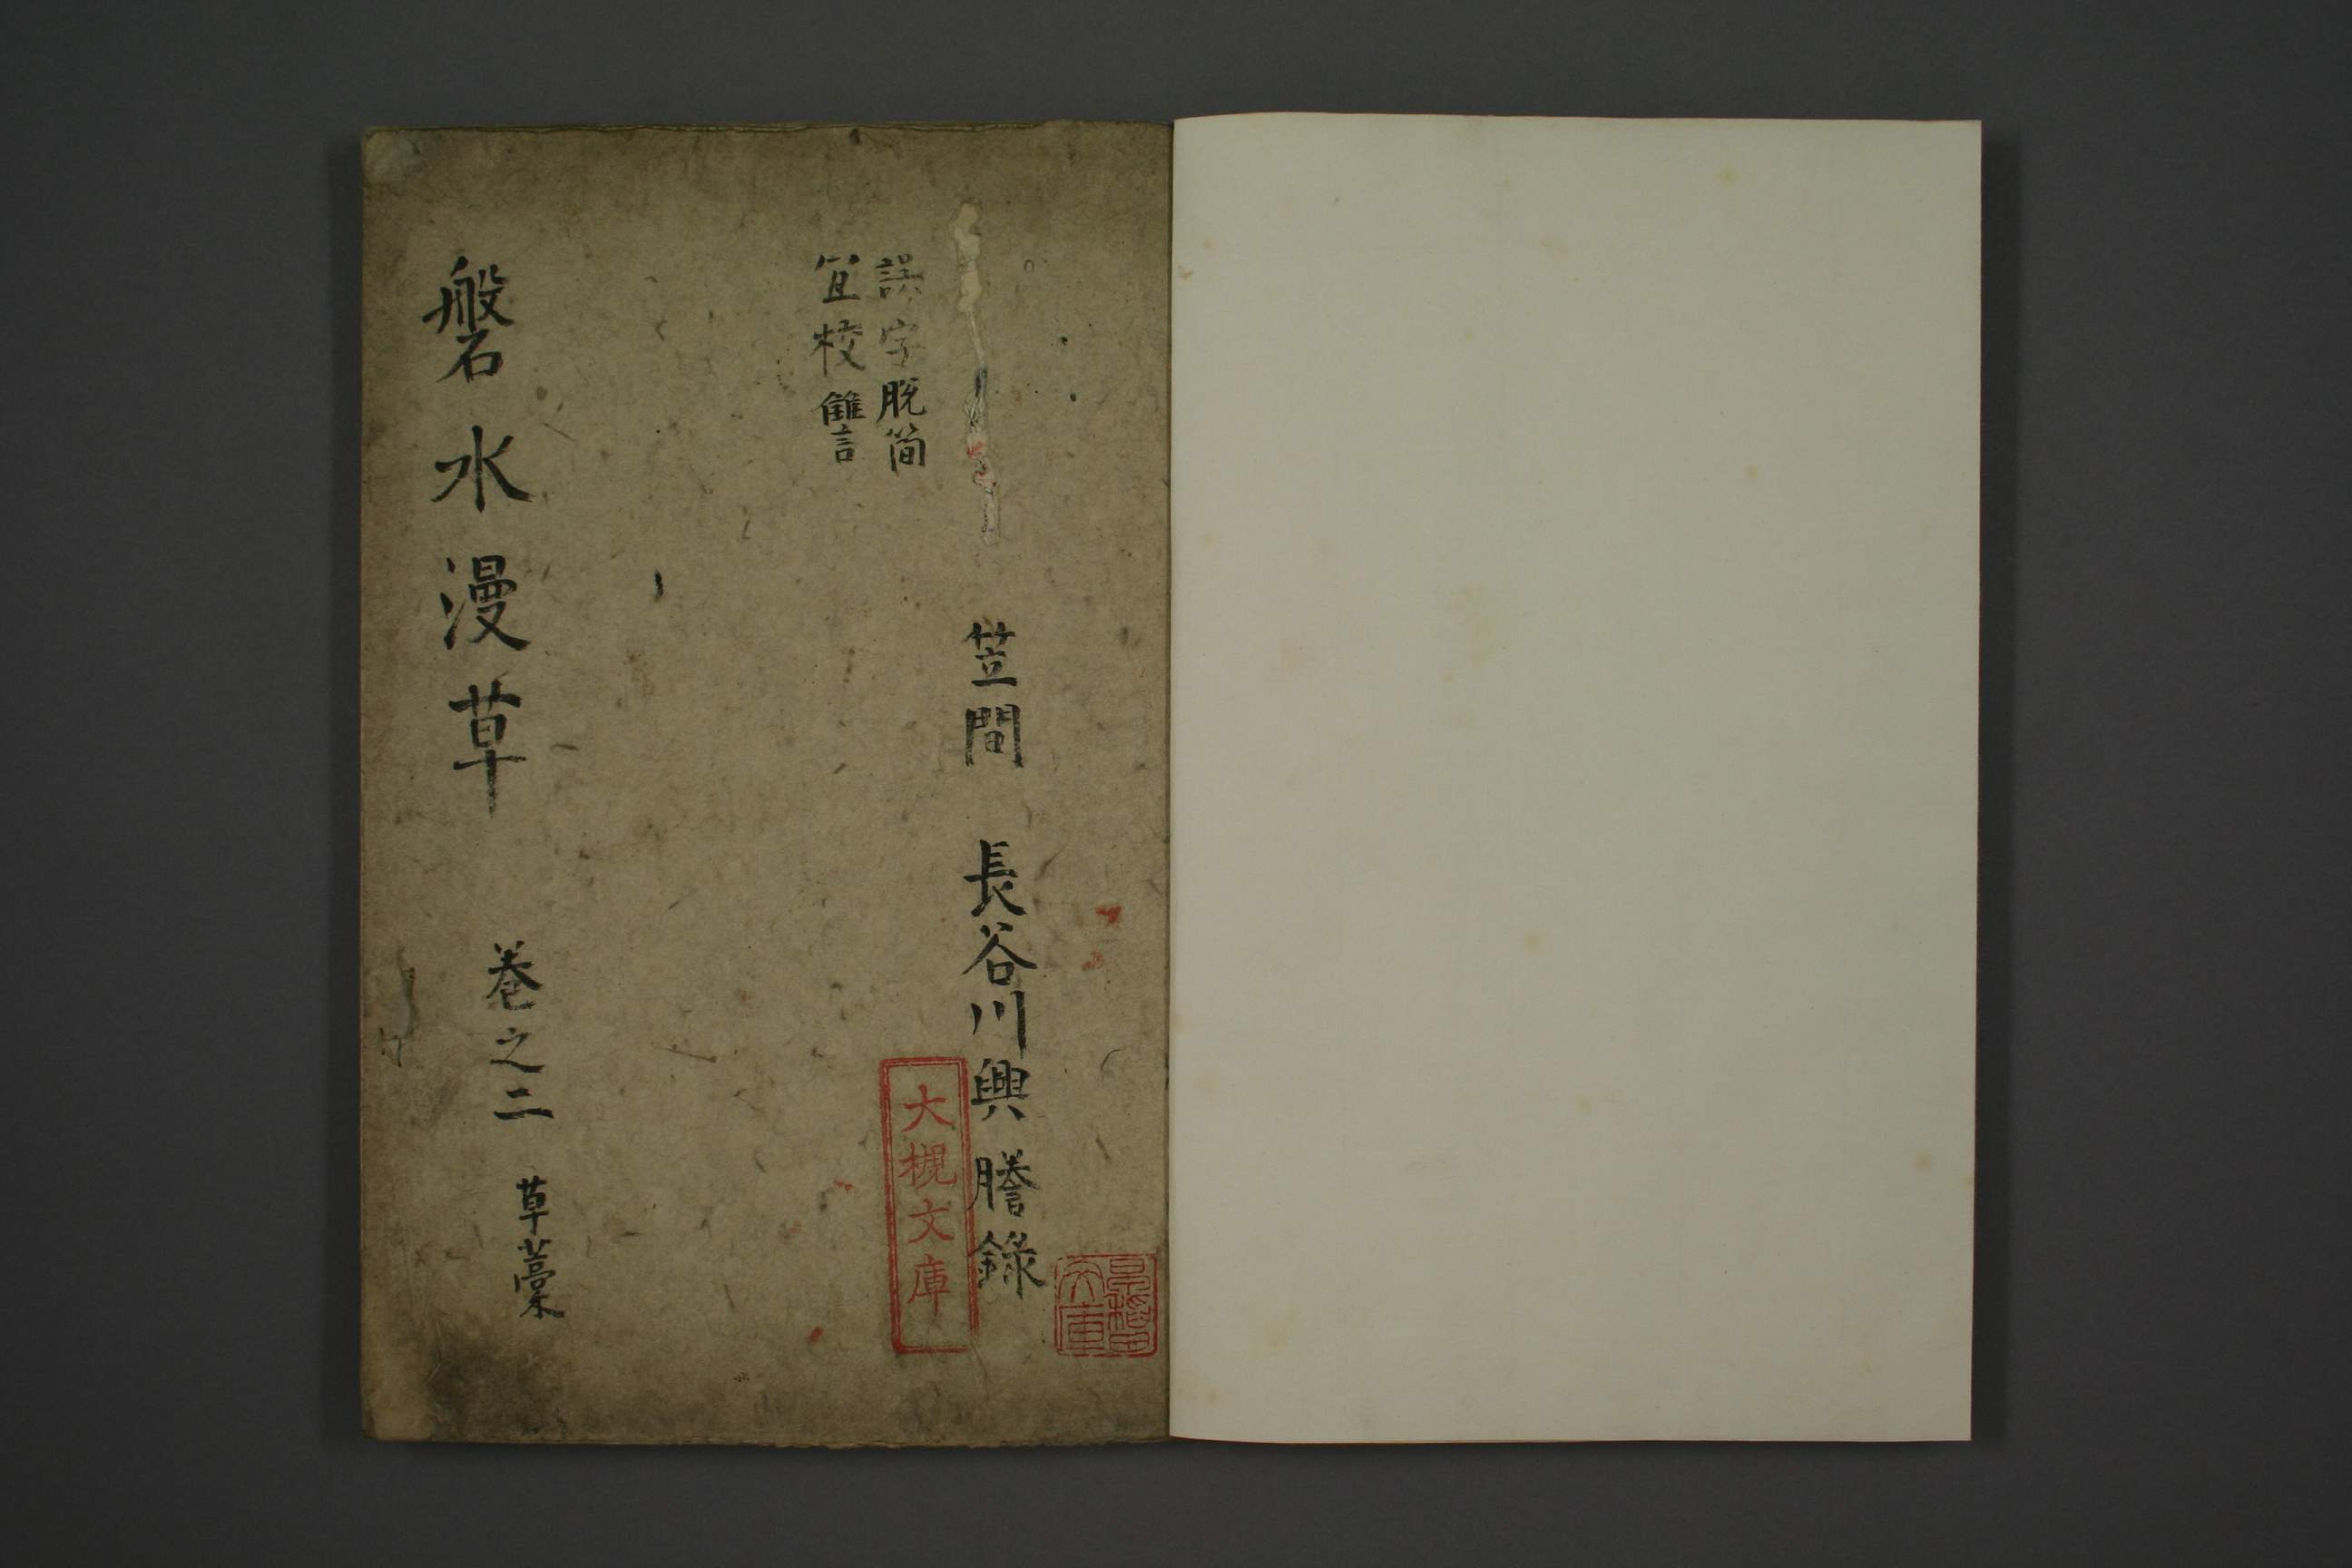 笠間 長谷川興 謄錄
誤字脫簡
宜校讎
磐水漫草 巻之二 草藁
大槻文庫